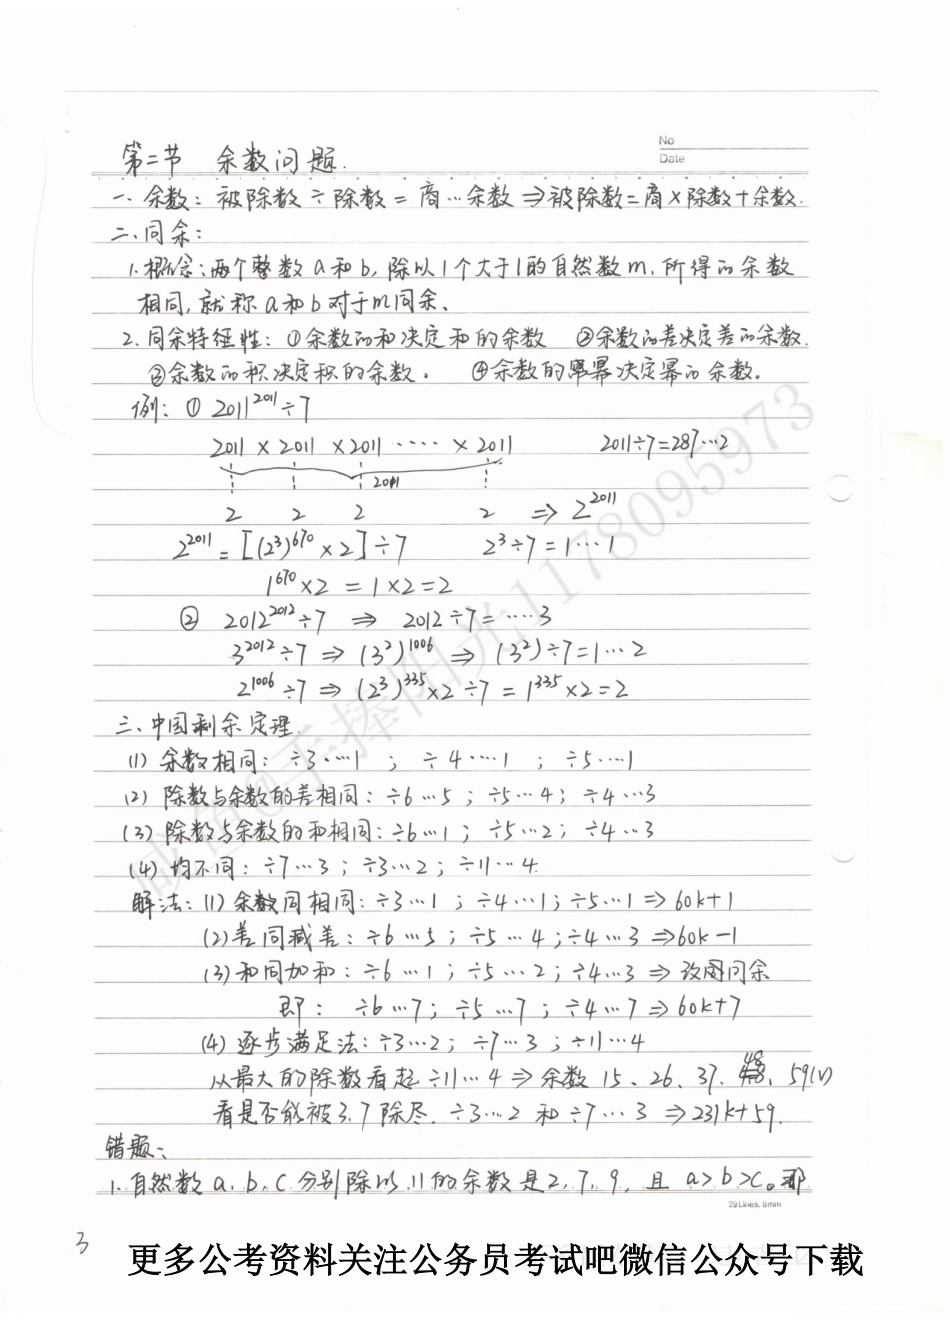 No
Date
第二节 余数问题.
一、余数：被除数÷除数=商…余数⇒被除数=商×除数+余数.
二、同余：
1.概念：两个整数a和b,除以1个大于1的自然数m,所得的余数
相同,就称a和b对于m同余、
2.同余特征性：①余数的和决定和的余数 ②余数的差决定差的余数.
③余数的积决定积的余数。 ④余数的幂决定幂的余数。
例：① 2011²⁰¹¹÷7
2011×2011×2011····×2011 2011÷7=287…2
2011
2 2 2 2 ⇒ 2²⁰¹¹
2²⁰¹¹=[(2³)⁶⁷⁰×2]÷7 2³÷7=1…1
1⁶⁷⁰×2=1×2=2
② 2012²⁰¹²÷7 ⇒ 2012÷7=……3
3²⁰¹²÷7 ⇒ (3²)¹⁰⁰⁶ ⇒ (3²)÷7=1…2
2¹⁰⁰⁶÷7 ⇒ (2³)³³⁵×2÷7=1³³⁵×2=2
三、中国剩余定理.
(1) 余数相同：÷3…1；÷4…1；÷5…1
(2) 除数与余数的差相同：÷6…5；÷5…4；÷4…3
(3) 除数与余数的和相同：÷6…1；÷5…2；÷4…3
(4) 均不同：÷7…3；÷3…2；÷11…4.
解法：(1) 余数同相同：÷3…1；÷4…1；÷5…1⇒60k+1
(2)差同减差：÷6…5；÷5…4；÷4…3⇒60k-1
(3)和同加和：÷6…1；÷5…2；÷4…3⇒改图同余
即：÷6…7；÷5…7；÷4…7⇒60k+7
(4) 逐步满足法：÷3…2；÷7…3；÷11…4
从最大的除数看起÷11…4⇒余数15、26、37、48、59(√)
看是否能被3.7除尽.÷3…2和÷7…3⇒231k+59.
错题：
1.自然数a、b、c分别除以11的余数是2,7,9,且a>b>c。那
29 Lines, 8mm
3
更多公考资料关注公务员考试吧微信公众号下载
咸鱼@手捧阳光1178095973